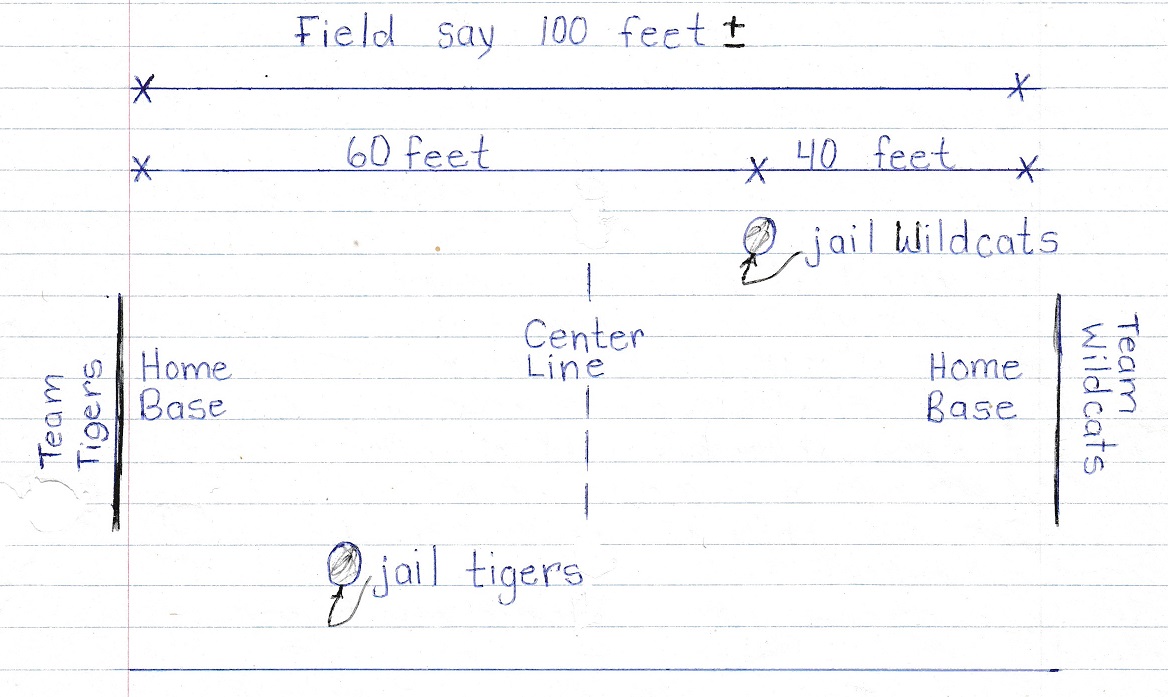 Field say 100 feet ±
60 feet
40 feet
jail Wildcats
Center
Line
Home
Base
Home
Base
Team
Tigers
Team
Wildcats
jail tigers